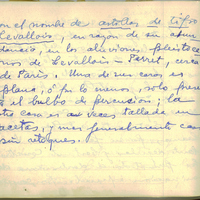 on el nombre de astillas de tipo
Levallois, en razón de su abun
dancia, en los aluviones pleistoce
nos de Levallois-Perret, cerca
de París. Una de sus caras es
plana, ó por lo menos, solo presen
el bulbo de percusión; la
otra cara es a veces tallada en
facetas, y mas generalmente can
sin retoques.